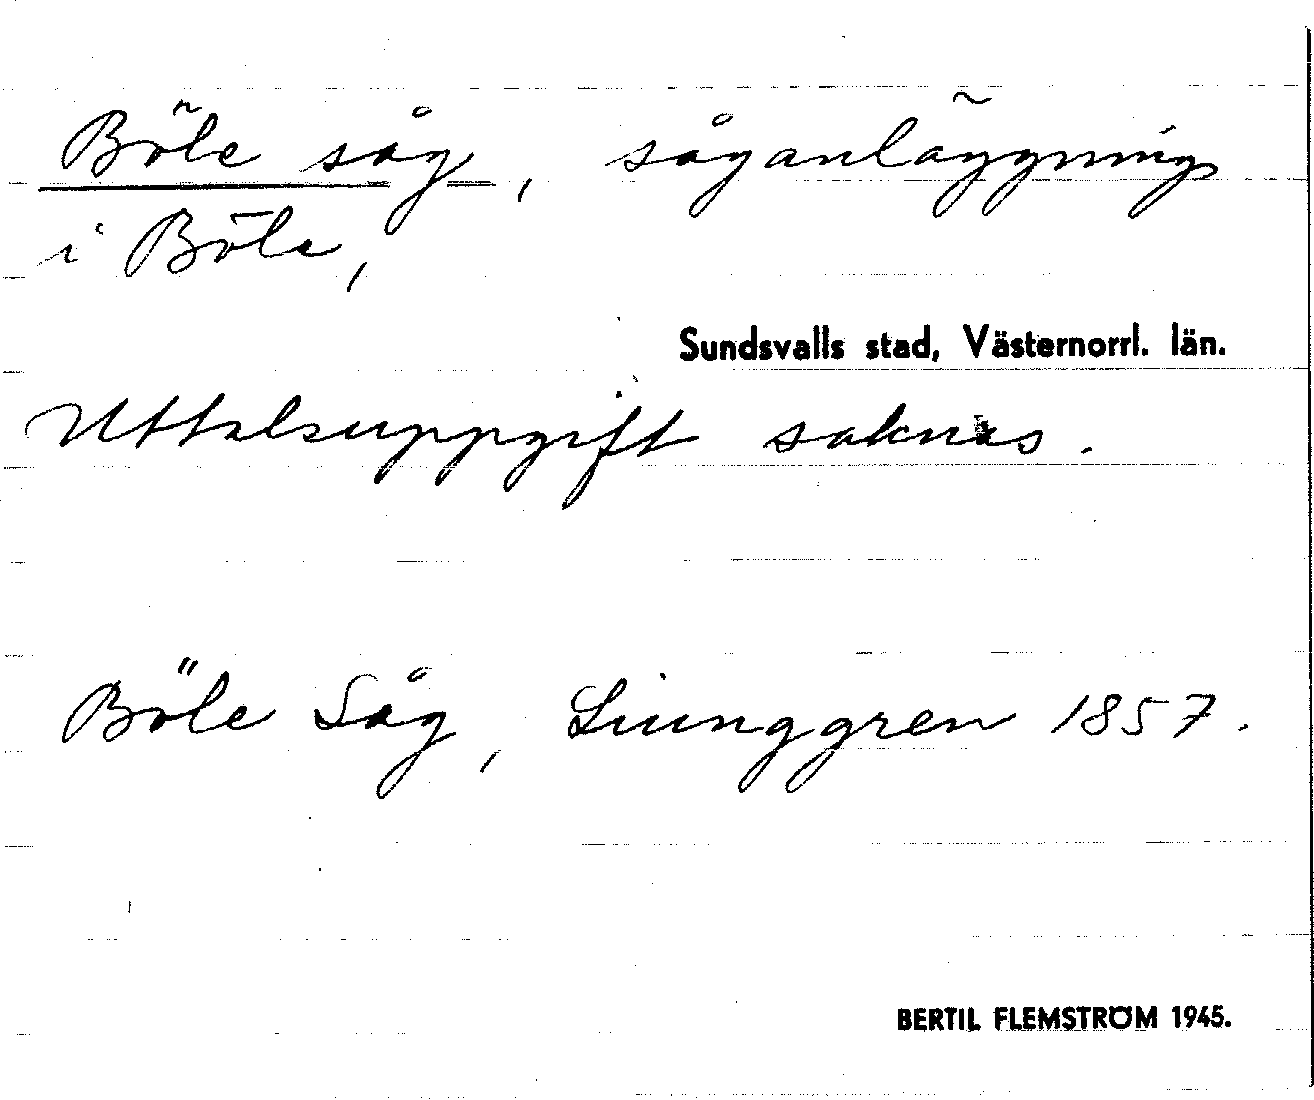 Böle såg, såganläggning
i Böle,
Sundsvalls stad, Västernorrl. län.
Uttalsuppgift saknas.
Böle Såg, Liunggren 1857.
BERTIL FLEMSTRÖM 1945.